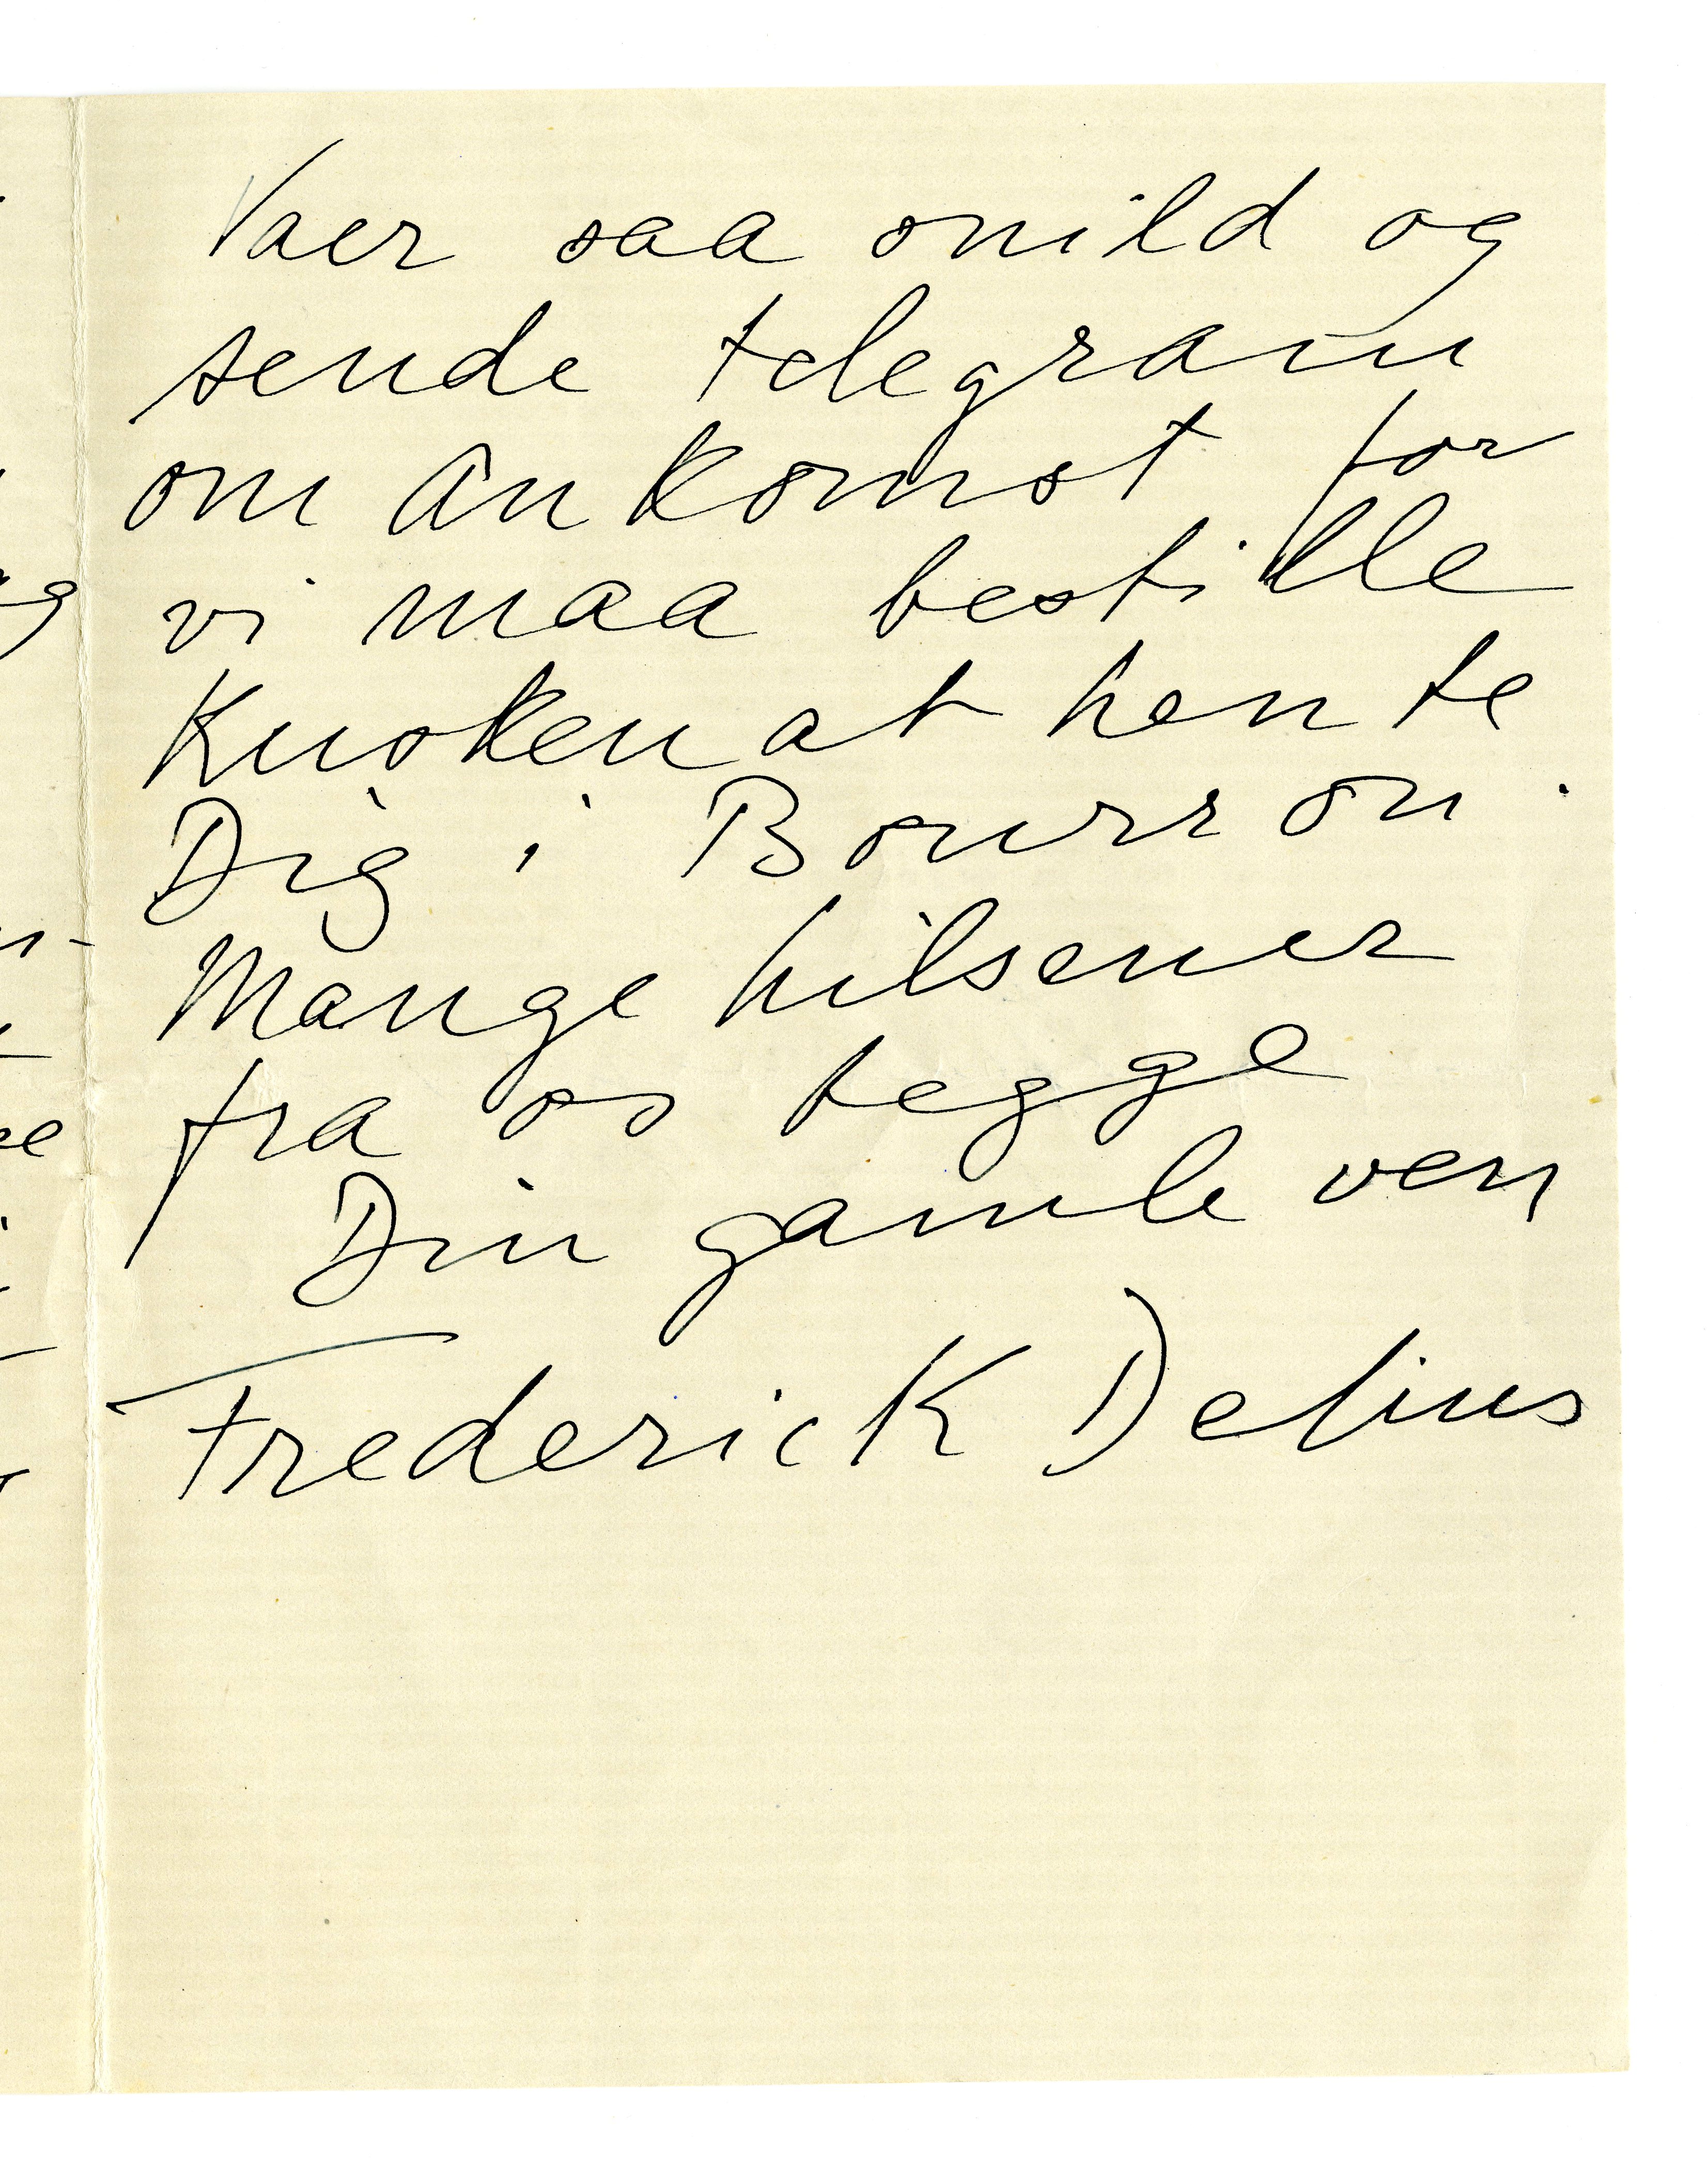 Vaer saa snild og
sende telegram
om Ankomst for
vi maa bestille
Kusken at hente
Dig i Bourron.
Mange hilsener
fra os begge
Din gamle ven
Frederick Delius